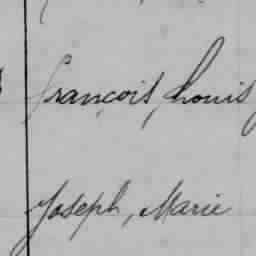 François, Louis,
Joseph, Marie